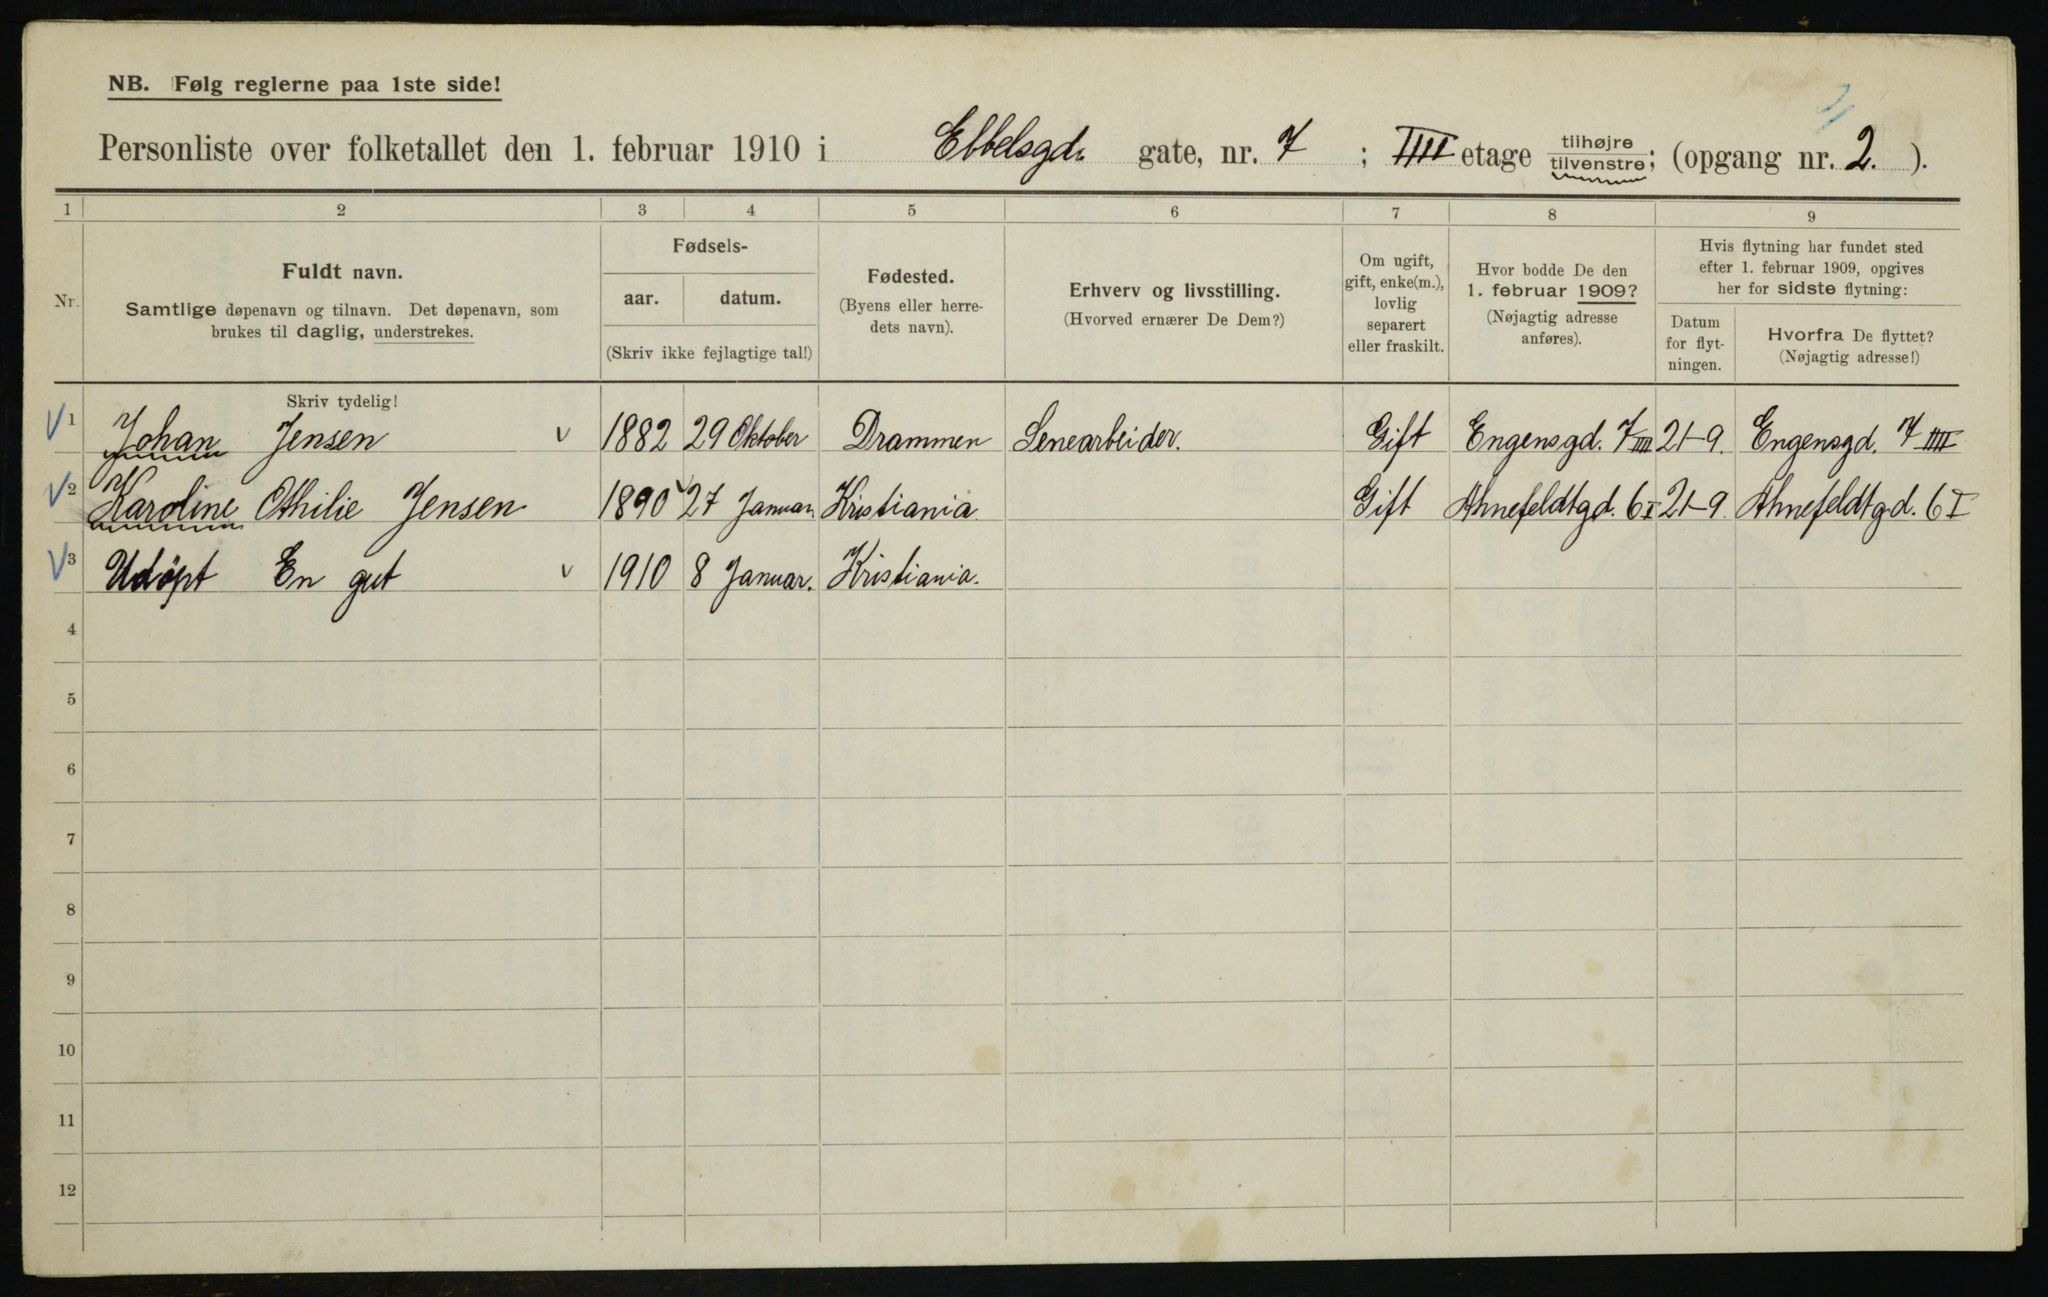 NB. Følg reglerne paa 1ste side!
Personliste over folketallet den 1. februar 1910 i Ebbelsgd. gate, nr. 7 ; IIII etage tilhøjre tilvenstre; (opgang nr. 2. ).
1 2 3 4 5 6 7 8 9
Nr.
Fuldt navn.
Samtlige døpenavn og tilnavn. Det døpenavn, som
brukes til daglig, understrekes.
Fødsels-
aar. datum.
(Skriv ikke fejlagtige tal!)
Fødested.
(Byens eller herre-
dets navn).
Erhverv og livsstilling.
(Hvorved ernærer De Dem?)
Om ugift,
gift, enke(m.),
lovlig
separert
eller fraskilt.
Hvor bodde De den
1. februar 1909?
(Nøjagtig adresse
anføres).
Hvis flytning har fundet sted
efter 1. februar 1909, opgives
her for sidste flytning:
Datum
for flyt-
ningen.
Hvorfra De flyttet?
(Nøjagtig adresse!)
Skriv tydelig!
1 Johan Jensen 1882 29 Oktober Drammen Senearbeider. Gift Engensgd. 7 IIII 21-9. Engensgd. 7 IIII
2 Karoline Othilie Jensen 1890 27 Januar Kristiania Gift Ahnefeldtgd. 6 I 21-9. Ahnefeldtgd. 6 I
3 Udöpt En gut 1910 8 Januar. Kristiania.
4
5
6
7
8
9
10
11
12